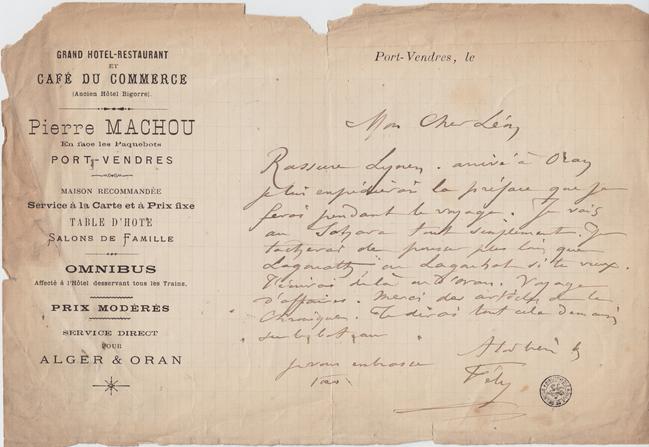 GRAND HOTEL-RESTAURANT
ET
CAFÉ DU COMMERCE
(Ancien Hôtel Bigorre).
Pierre MACHOU
En face les Paquebots
PORT-VENDRES
MAISON RECOMMANDÉE
Service à la Carte et à Prix fixe
TABLE D'HOTE
SALONS DE FAMILLE
OMNIBUS
Affecté à l'Hôtel desservant tous les Trains.
PRIX MODÉRÉS
SERVICE DIRECT
POUR
ALGER & ORAN
Port-Vendres, le
Mon Cher Léon
Rassure . arrivé à Oran
je lui enverrai la préface que je
ferai pendant le voyage. Je vais
au Sahara tout simplement. Je
tacherai de pousser plus loin que
Lagouatt ou Laghouat si tu veux.
T'écrirai de là ou d'Oran. Voyage
d'affaires. Merci des articles de la
Chronique. Te dirai tout cela demain
sur le bateau
je vous embrasse
tous
A toi bien
Fély